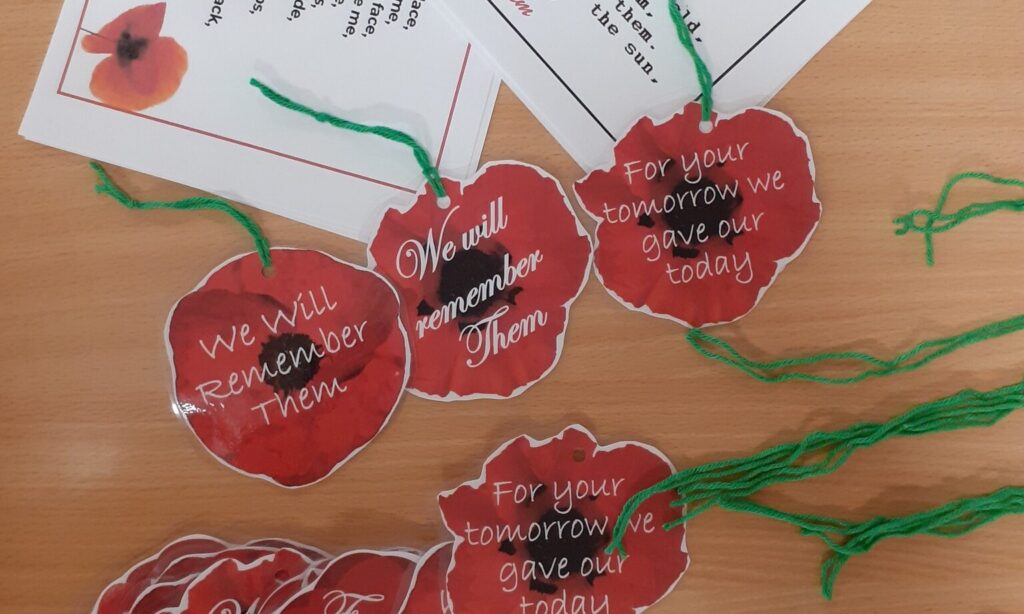 lace,
me,
face
e me,
de,
os,
ack,
them.
the sun,
ld,
For your
tomorrow we
gave our
today
We will
remember
Them
We Will
Remember
Them
For your
tomorrow we
gave our
today